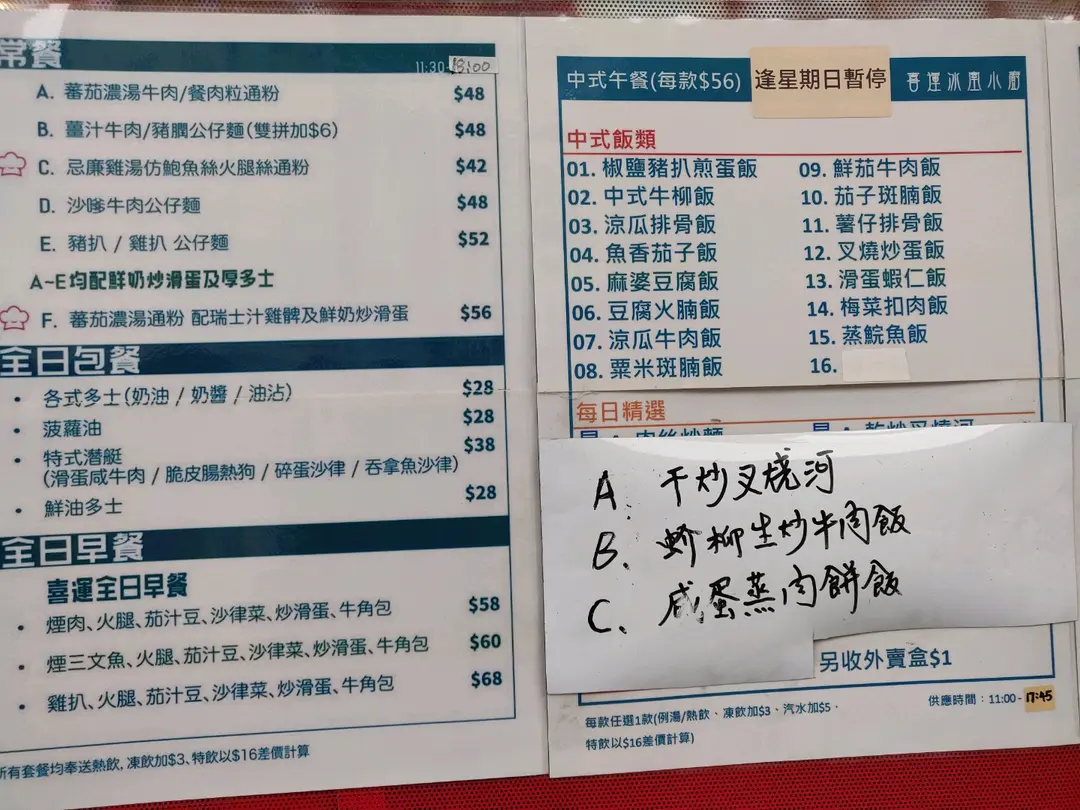 常餐 11:30-18:00
A. 蕃茄濃湯牛肉/餐肉粒通粉 $48
B. 薑汁牛肉/豬膶公仔麵(雙拼加$6) $48
C. 忌廉雞湯仿鮑魚絲火腿絲通粉 $42
D. 沙嗲牛肉公仔麵 $48
E. 豬扒 / 雞扒 公仔麵 $52
A~E均配鮮奶炒滑蛋及厚多士
F. 蕃茄濃湯通粉 配瑞士汁雞髀及鮮奶炒滑蛋 $56
全日包餐
• 各式多士(奶油 / 奶醬 / 油沾) $28
• 菠蘿油 $28
• 特式潛艇 $38
(滑蛋咸牛肉 / 脆皮腸熱狗 / 碎蛋沙律 / 吞拿魚沙律)
• 鮮油多士 $28
全日早餐
喜運全日早餐
• 煙肉、火腿、茄汁豆、沙律菜、炒滑蛋、牛角包 $58
• 煙三文魚、火腿、茄汁豆、沙律菜、炒滑蛋、牛角包 $60
• 雞扒、火腿、茄汁豆、沙律菜、炒滑蛋、牛角包 $68
所有套餐均奉送熱飲, 凍飲加$3、特飲以$16差價計算
中式午餐(每款$56) 逢星期日暫停 喜運冰室小廚
中式飯類
01. 椒鹽豬扒煎蛋飯
02. 中式牛柳飯
03. 涼瓜排骨飯
04. 魚香茄子飯
05. 麻婆豆腐飯
06. 豆腐火腩飯
07. 涼瓜牛肉飯
08. 粟米斑腩飯
09. 鮮茄牛肉飯
10. 茄子斑腩飯
11. 薯仔排骨飯
12. 叉燒炒蛋飯
13. 滑蛋蝦仁飯
14. 梅菜扣肉飯
15. 蒸鯇魚飯
16.
每日精選
A. 干炒叉烧河
B. 蚧柳生炒牛肉飯
C. 咸蛋蒸肉餅飯
另收外賣盒$1
供應時間：11:00 - 17:45
每款任選1款(例湯/熱飲、凍飲加$3、汽水加$5，
特飲以$16差價計算)